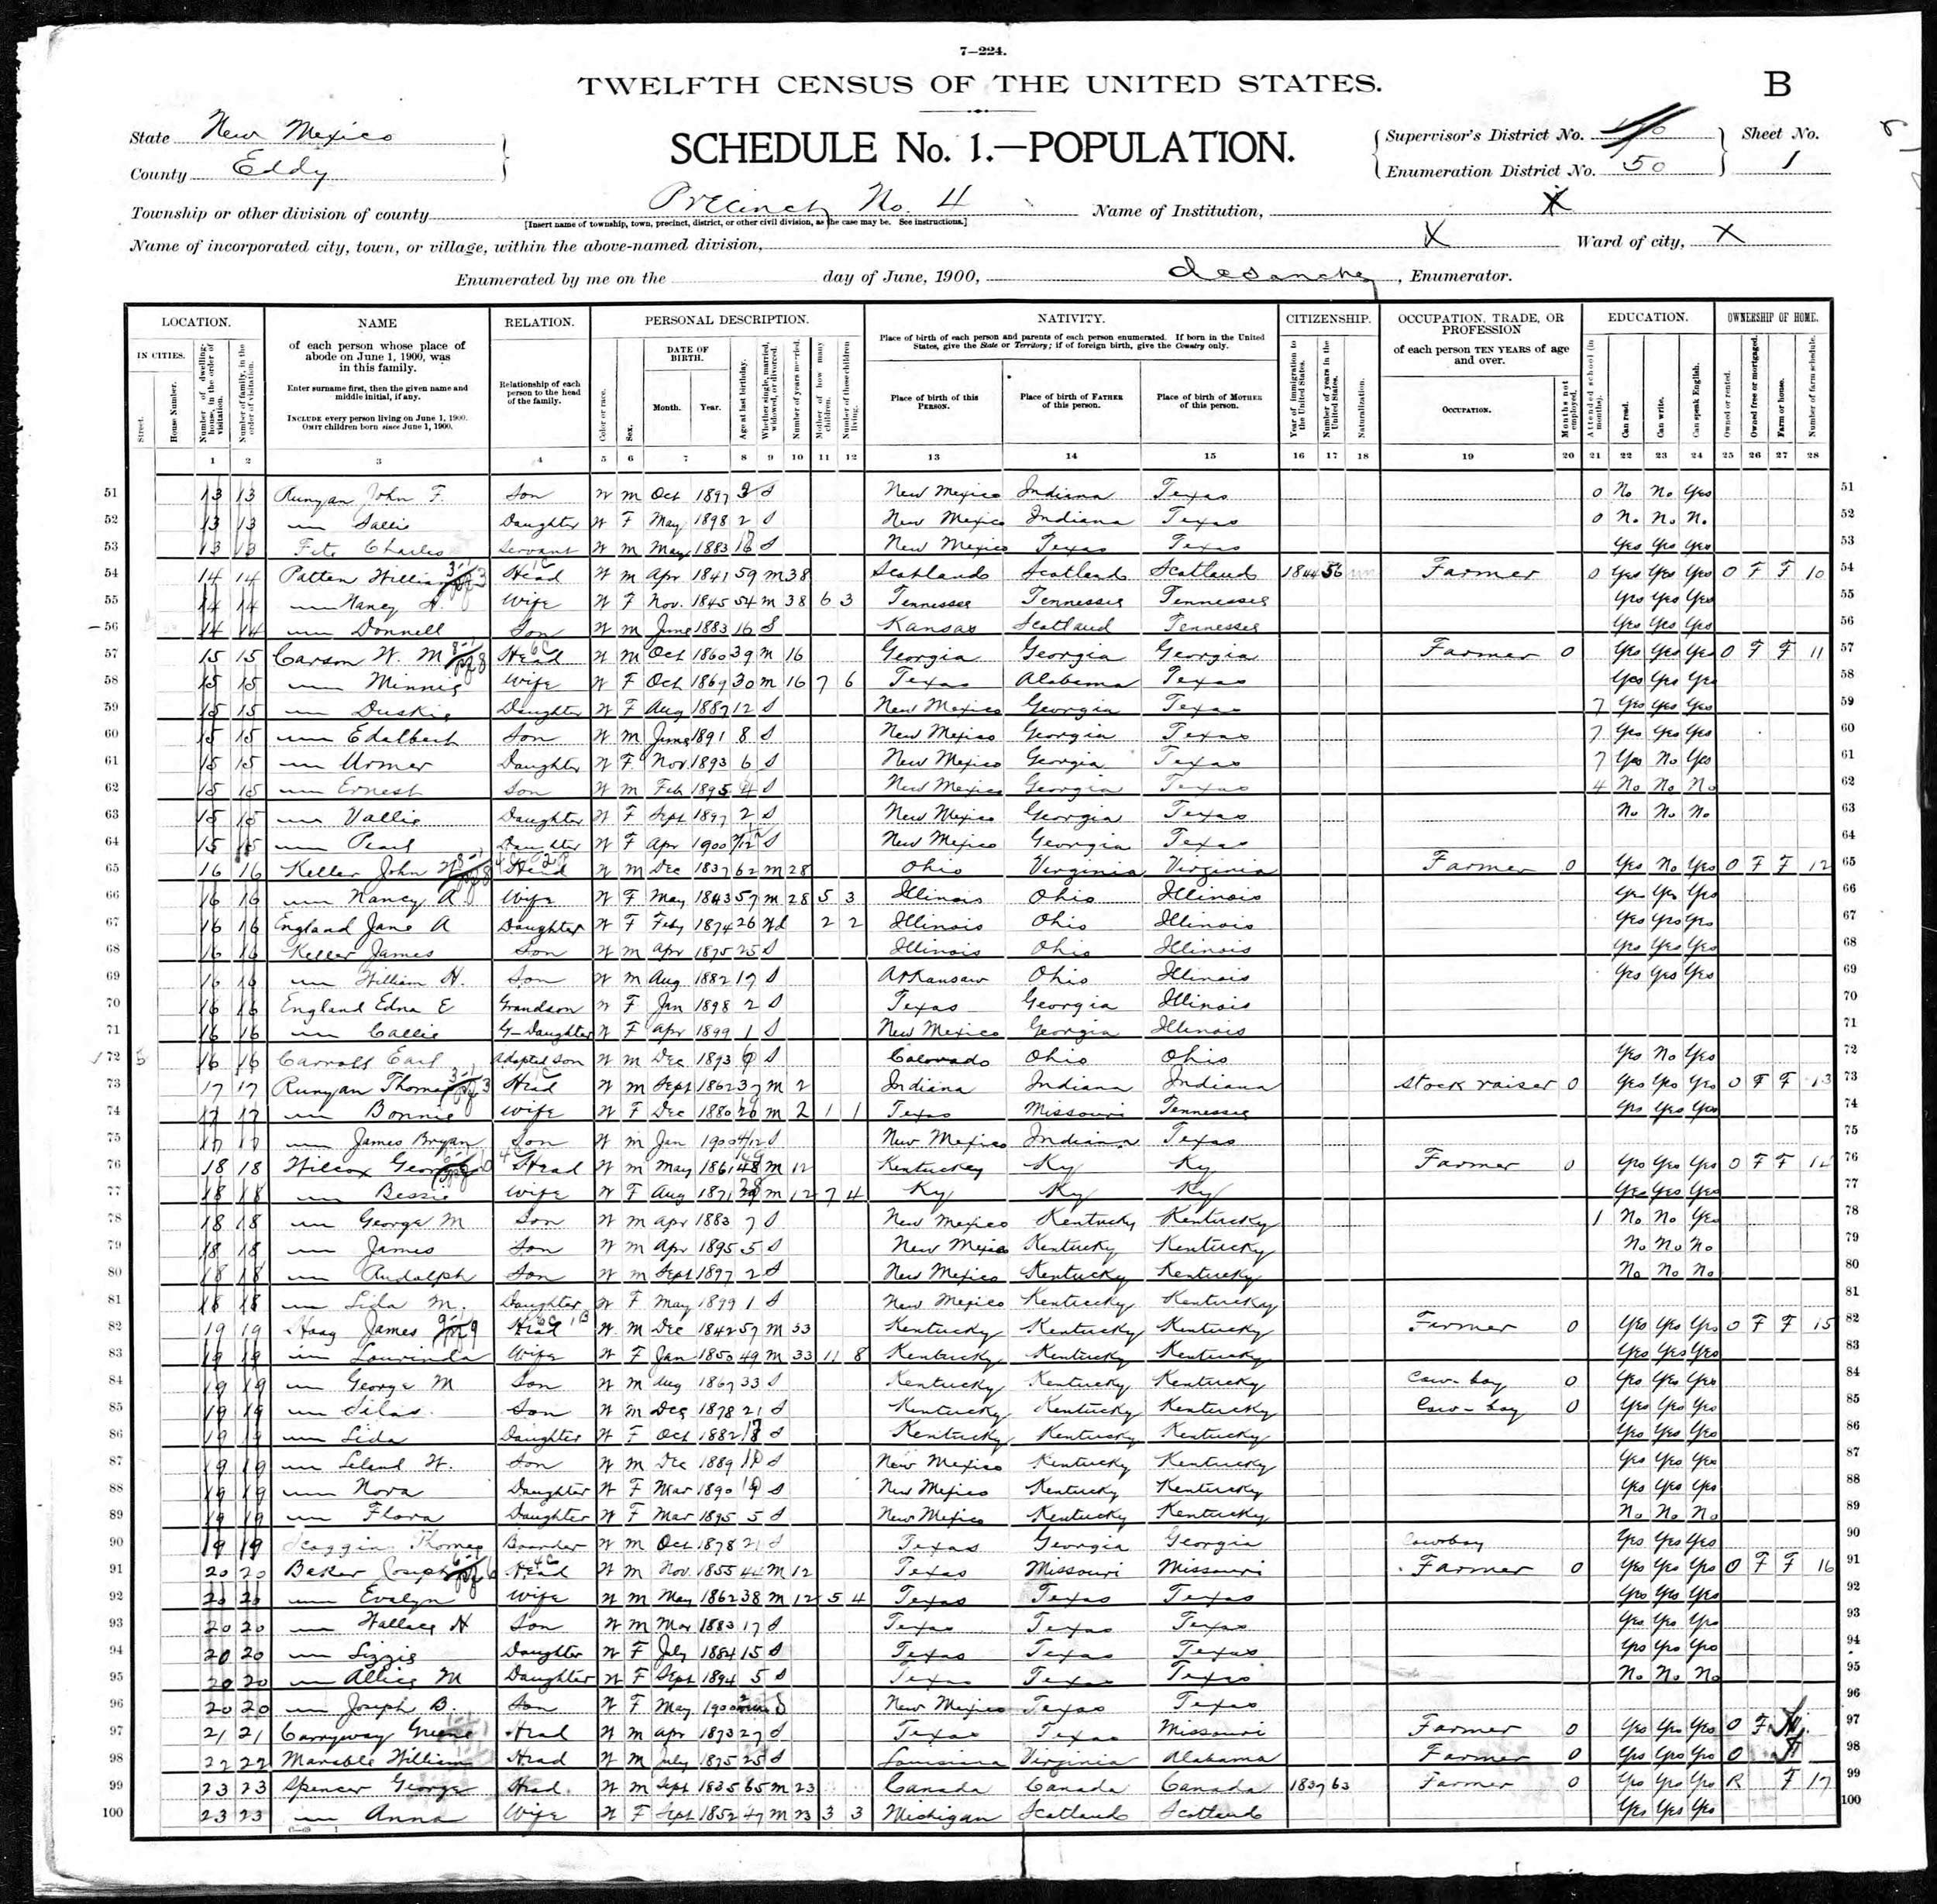 7—224.
TWELFTH CENSUS OF THE UNITED STATES.
B
State New Mexico
County Eddy
SCHEDULE No. 1.—POPULATION.
Supervisor's District No.
Enumeration District No. 50
Sheet No. 1
Township or other division of county Precinct No. 4 Name of Institution, X
[Insert name of township, town, precinct, district, or other civil division, as the case may be. See instructions.]
Name of incorporated city, town, or village, within the above-named division, X Ward of city, X
Enumerated by me on the day of June, 1900, , Enumerator.
LOCATION. NAME RELATION. PERSONAL DESCRIPTION. NATIVITY. CITIZENSHIP. OCCUPATION, TRADE, OR PROFESSION EDUCATION. OWNERSHIP OF HOME.
IN CITIES. Street. House Number. Number of dwelling-house, in the order of visitation. Number of family, in the order of visitation.
of each person whose place of abode on June 1, 1900, was in this family.
Enter surname first, then the given name and middle initial, if any.
INCLUDE every person living on June 1, 1900. OMIT children born since June 1, 1900.
Relationship of each person to the head of the family.
Color or race. Sex. DATE OF BIRTH. Month. Year. Age at last birthday. Whether single, married, widowed, or divorced. Number of years married. Mother of how many children. Number of these children living.
Place of birth of each person and parents of each person enumerated. If born in the United States, give the State or Territory; if of foreign birth, give the Country only.
Place of birth of this PERSON. Place of birth of FATHER of this person. Place of birth of MOTHER of this person.
Year of immigration to the United States. Number of years in the United States. Naturalization.
of each person TEN YEARS of age and over.
OCCUPATION. Months not employed.
Attended school (in months). Can read. Can write. Can speak English.
Owned or rented. Owned free or mortgaged. Farm or house. Number of farm schedule.
1 2 3 4 5 6 7 8 9 10 11 12 13 14 15 16 17 18 19 20 21 22 23 24 25 26 27 28
51 13 13 Runyan John F. Son W M Oct 1897 S New Mexico Indiana Texas 0 No No Yes 51
52 13 13 Sallie Daughter W F May 1898 2 S New Mexico Indiana Texas 0 No No No 52
53 13 13 Charles Servant W M May 1883 S New Mexico Texas Texas Yes Yes Yes 53
54 14 14 Patten William Head W M Apr 1841 59 M 38 Scotland Scotland Scotland 1844 56 Farmer 0 Yes Yes Yes O F F 10 54
55 14 14 Nancy Wife W F Nov. 1845 54 M 38 6 3 Tennessee Tennessee Tennessee Yes Yes Yes 55
56 14 14 Donnell Son W M June 1883 16 S Kansas Scotland Tennessee Yes Yes Yes 56
57 15 15 Carson W. M Head W M Oct 1860 39 M 16 Georgia Georgia Georgia Farmer 0 Yes Yes Yes O F F 11 57
58 15 15 Minnie Wife W F Oct 1869 30 M 16 7 6 Texas Alabama Texas Yes Yes Yes 58
59 15 15 Duskie Daughter W F Aug 1887 12 S New Mexico Georgia Texas 7 Yes Yes Yes 59
60 15 15 Edelbert Son W M June 1891 8 S New Mexico Georgia Texas 7 Yes Yes Yes 60
61 15 15 Urmer Daughter W F Nov 1893 6 S New Mexico Georgia Texas 7 Yes No Yes 61
62 15 15 Ernest Son W M Feb 1895 S New Mexico Georgia Texas 4 No No No 62
63 15 15 Vallie Daughter W F Sept 1897 2 S New Mexico Georgia Texas No No No 63
64 15 15 Pearl Daughter W F Apr 1900 S New Mexico Georgia Texas 64
65 16 16 Keller John Head W M Dec 1837 62 M 28 Ohio Virginia Virginia Farmer 0 Yes No Yes O F F 12 65
66 16 16 Nancy A Wife W F May 1843 57 M 28 5 3 Illinois Ohio Illinois Yes Yes Yes 66
67 16 16 England Jane A Daughter W F Feby 1874 26 Wd 2 2 Illinois Ohio Illinois Yes Yes Yes 67
68 16 16 Keller James Son W M Apr 1875 25 S Illinois Ohio Illinois Yes Yes Yes 68
69 16 16 William H. Son W M Aug 1882 17 S Arkansaw Ohio Illinois Yes Yes Yes 69
70 16 16 England Edna E Grandson W F Jan 1898 2 S Texas Georgia Illinois 70
71 16 16 Callie G-Daughter W F Apr 1899 1 S New Mexico Georgia Illinois 71
72 16 16 Carroll Earl Adopted Son W M Dec 1893 6 S Colorado Ohio Ohio Yes No Yes 72
73 17 17 Runyan Thomas Head W M Sept 1862 37 M 2 Indiana Indiana Indiana Stock raiser 0 Yes Yes Yes O F F 13 73
74 17 17 Bonnie Wife W F Dec 1880 M 2 1 1 Texas Missouri Tennessee Yes Yes Yes 74
75 17 17 James Bryan Son W M Jan 1900 4/12 S New Mexico Indiana Texas 75
76 18 18 Wilcox George Head W M May 1861 M 12 Kentuckey Ky Ky Farmer 0 Yes Yes Yes O F F 14 76
77 18 18 Bessie Wife W F Aug 1871 M 12 7 4 Ky Ky Ky Yes Yes Yes 77
78 18 18 George M Son W M Apr 1883 7 S New Mexico Kentucky Kentucky 1 No No Yes 78
79 18 18 James Son W M Apr 1895 5 S New Mexico Kentucky Kentucky No No No 79
80 18 18 Rudolph Son W M Sept 1897 2 S New Mexico Kentucky Kentucky No No No 80
81 18 18 Lida M. Daughter W F May 1899 1 S New Mexico Kentucky Kentucky 81
82 19 19 Haag James Head W M Dec 1842 57 M 33 Kentucky Kentucky Kentucky Farmer 0 Yes Yes Yes O F F 15 82
83 19 19 Lourinda Wife W F Jan 1850 49 M 33 11 8 Kentucky Kentucky Kentucky Yes Yes Yes 83
84 19 19 George M Son W M Aug 1867 33 S Kentucky Kentucky Kentucky Cow-boy 0 Yes Yes Yes 84
85 19 19 Silas Son W M Dec 1878 21 S Kentucky Kentucky Kentucky Cow-boy 0 Yes Yes Yes 85
86 19 19 Lida Daughter W F Oct 1882 S Kentucky Kentucky Kentucky Yes Yes Yes 86
87 19 19 Leland W. Son W M Dec 1889 S New Mexico Kentucky Kentucky Yes Yes Yes 87
88 19 19 Nora Daughter W F Mar 1890 S New Mexico Kentucky Kentucky Yes Yes Yes 88
89 19 19 Flora Daughter W F Mar 1895 5 S New Mexico Kentucky Kentucky No No No 89
90 19 19 Scoggin Thomas Boarder W M Oct 1878 21 S Texas Georgia Georgia Cowboy Yes Yes Yes 90
91 20 20 Baker Joseph Head W M Nov. 1855 44 M 12 Texas Missouri Missouri Farmer 0 Yes Yes Yes O F F 16 91
92 20 20 Evelyn Wife W M May 1862 38 M 12 5 4 Texas Texas Texas Yes Yes Yes 92
93 20 20 Wallace H Son W M Mar 1883 17 S Texas Texas Texas Yes Yes Yes 93
94 20 20 Lizzie Daughter W F July 1884 15 S Texas Texas Texas Yes Yes Yes 94
95 20 20 Allice M Daughter W F Sept 1894 5 S Texas Texas Texas No No No 95
96 20 20 Joseph B. Son W F May 1900 S New Mexico Texas Texas 96
97 21 21 Carryway Greene Head W M Apr 1873 27 S Texas Texas Missouri Farmer 0 Yes Yes Yes O F 97
98 22 22 Marable William Head W M July 1875 25 S Louisina Virginia Alabama Farmer 0 Yes Yes Yes O 98
99 23 23 Spencer George Head W M Sept 1835 65 M 23 Canada Canada Canada 1837 63 Farmer 0 Yes Yes Yes R F 17 99
100 23 23 Anna Wife W F Sept 1852 47 M 23 3 3 Michigan Scotland Scotland Yes Yes Yes 100